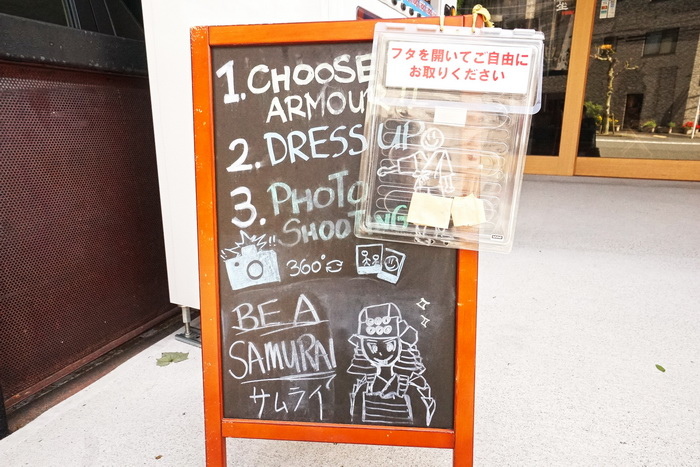 フタを開いてご自由に
お取りください
1. CHOOSE
ARMOUR
2. DRESS UP
3. PHOTO
SHOOTING
360°
BE A
SAMURAI
サムライ